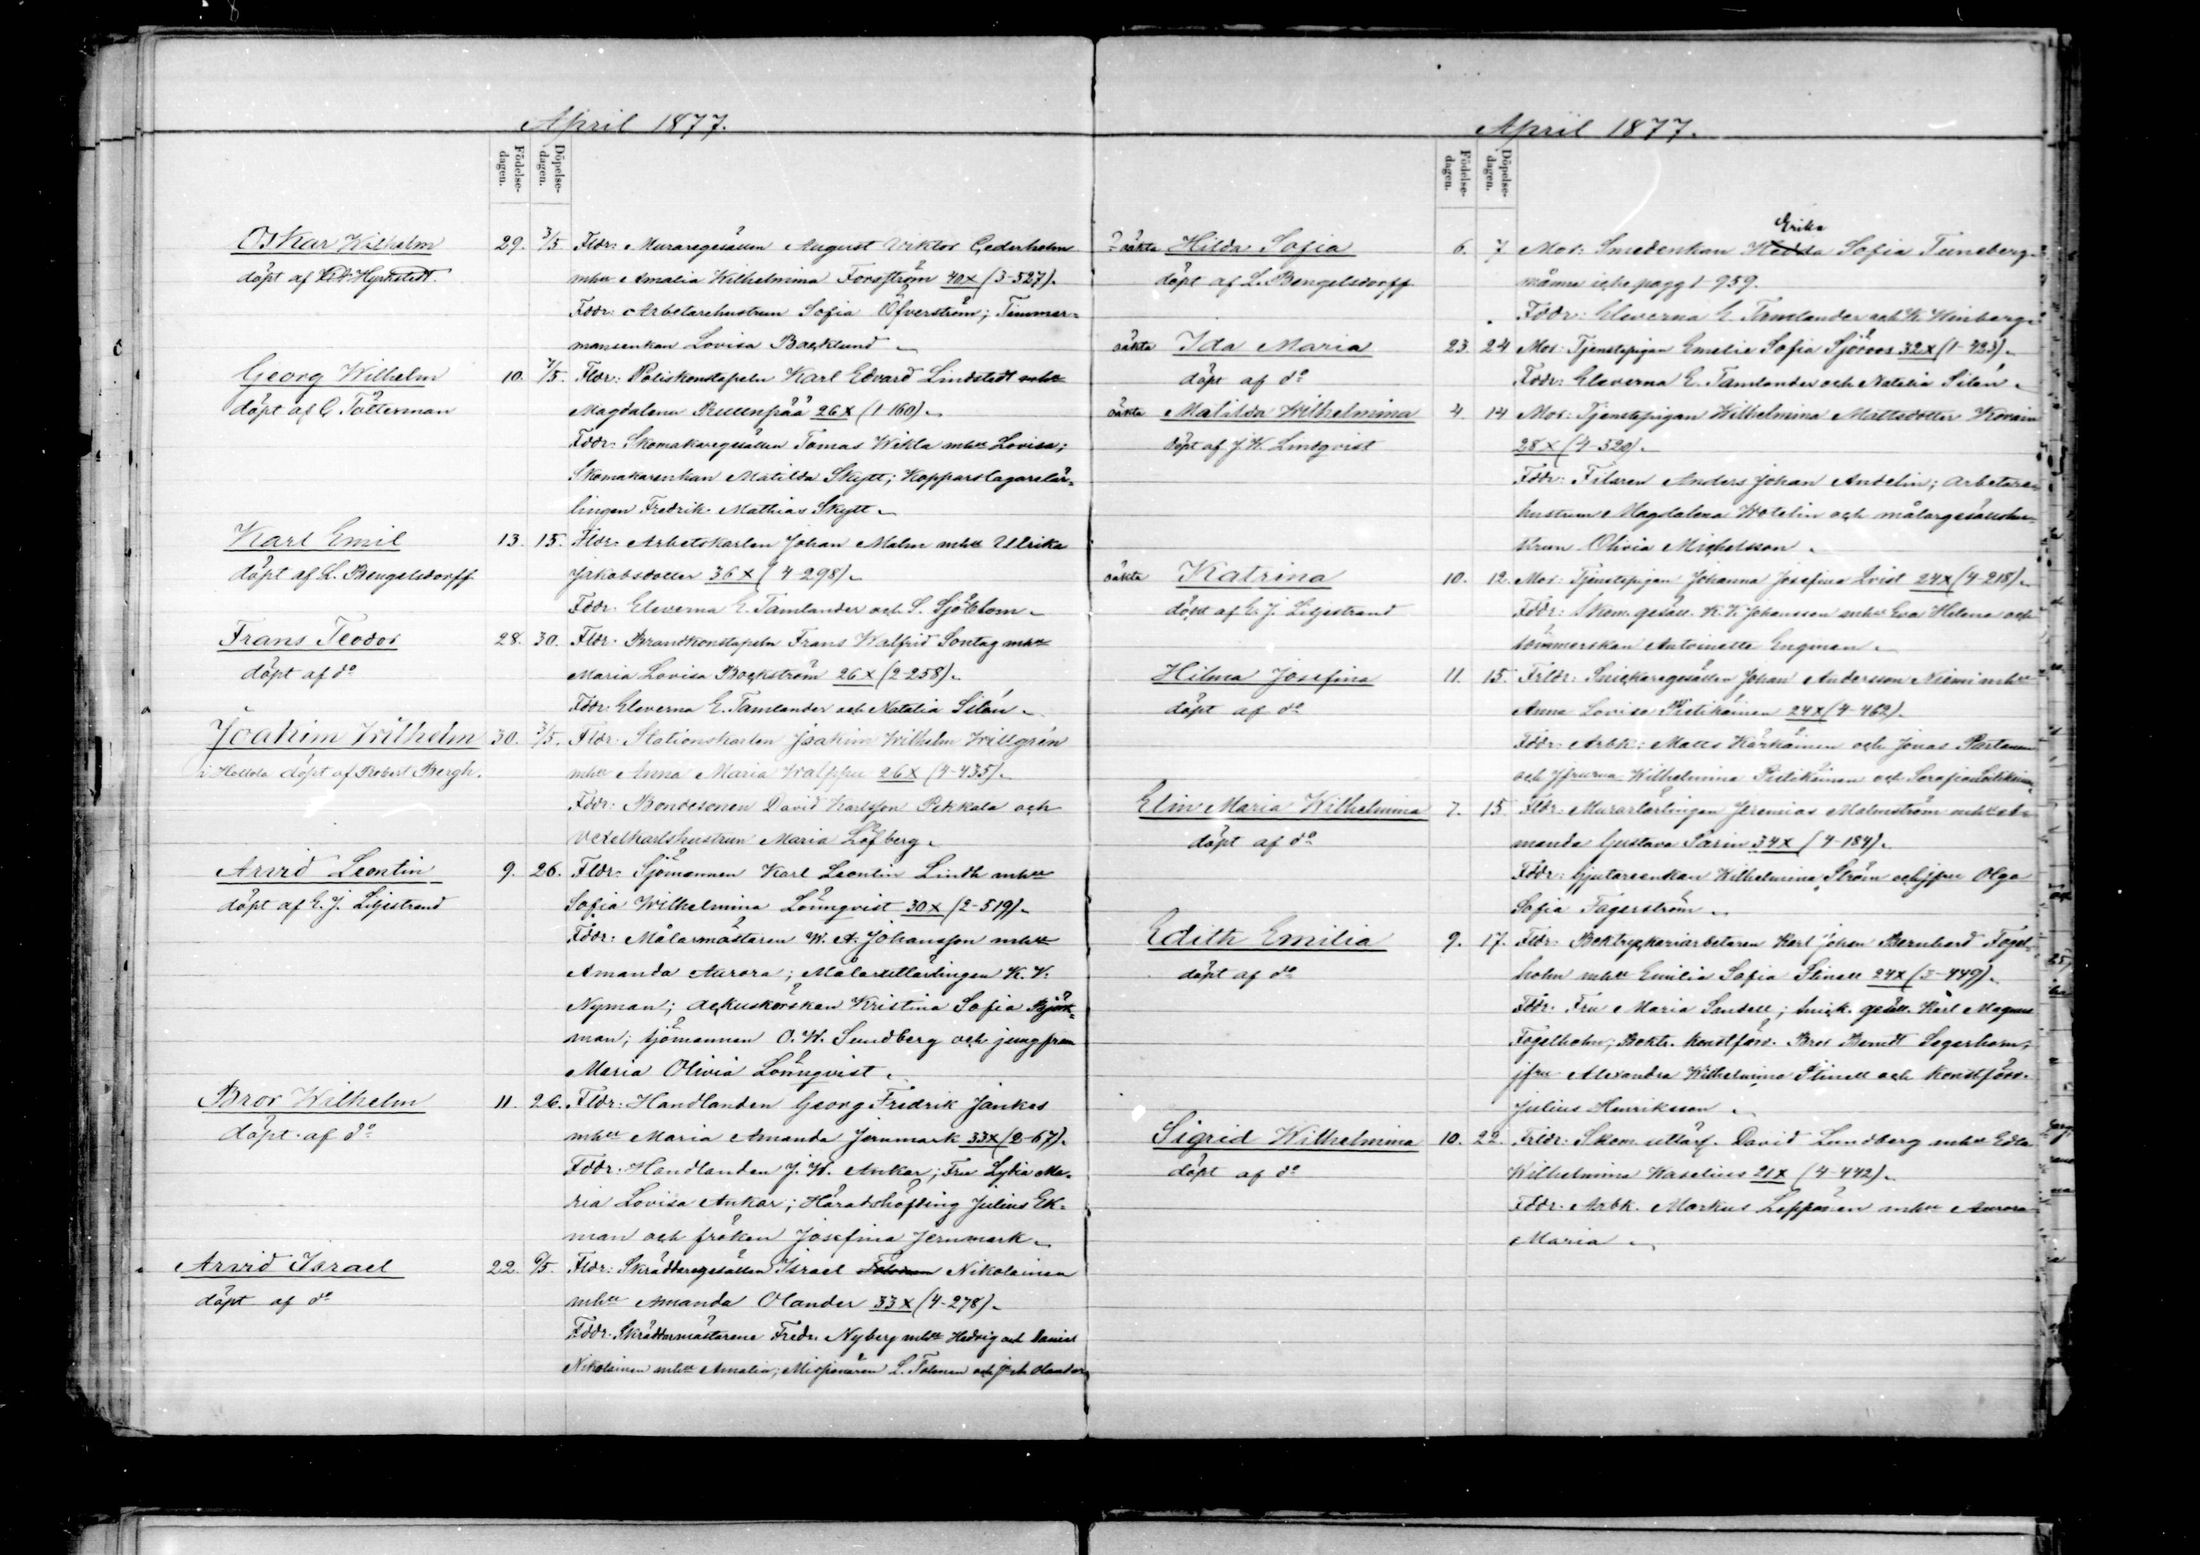 April 1877.
Födelsedagen.
Döpelsedagen.
Oskar Wilhelm 29. 3/5. Fldr: Muraregesällen August Viktor Cederholm
döpt af Hjertstedt. mhu Amalia Wilhelmina Forsström 40x (3-527).
Fddr: Arbetarehustrun Sofia Öfverström; Timmer-
mansenkan Lovisa Backlund.
Georg Wilhelm 10. 7/5. Fldr: Poliskonstapeln Karl Edvard Lindstedt mhu
döpt af G Tötterman Magdalena 26x (1-160).
Fddr: Skomakaregesällen Tomas Wikla mhu Lovisa;
Skomakarenkan Matilda Skytt; Kopparslagarelär-
lingen Fredrik Mathias Skytt.
Karl Emil 13. 15. Fldr: Arbetskarlen Johan Malm mhu Ulrika
döpt af L. Bengelsdorff. Jakobsdotter 36x (4-298).
Fddr: Eleverna E. Tamlander och S. Sjöblom.
Frans Teodor 28. 30. Fldr: Brandkonstapeln Frans Walfrid Sontag mhu
döpt af do Maria Lovisa Backström 26x (2-258).
Fddr: Eleverna E. Tamlander och Natalia Silén.
Joakim Wilhelm 30. 3/5. Fldr: Stationskarlen Joakim Wilhelm Willgrén
i Hollola döpt af Robert Bergh. mhu Anna Maria Walppu 26x (4-435).
Fddr: Bondesonen David Karlsson Pekkala och
Vexelkarlshustrun Maria Löfberg.
Arvid Leontin 9. 26. Fldr: Sjömannen Karl Leontin Lindh mhu
döpt af E. J. Liljestrand Sofia Wilhelmina Lönnqvist 30x (2-519).
Fddr: Målarmästaren W. A. Johansson mhu
Amanda Aurora; Målarelärlingen K. V.
Nyman; ackuskörskan Kristina Sofia Björk-
man; sjömannen O. W. Sundberg och jungfrun
Maria Olivia Lönnqvist.
Bror Wilhelm 11. 26. Fldr: Handlanden Georg Fredrik Jankes
döpt af do mhu Maria Amanda Jernmark 33x (2-67).
Fddr: Handlanden J. W. Ankar; Fru Lydia Ma-
ria Lovisa Ankar; Häradshöfding Julius Ek-
man och fröken Josefina Jernmark.
Arvid Israel 22. 6/5. Fldr: Skräddaregesällen Israel Nikolainen
döpt af do mhu Amanda Olander 33x (4-278).
Fddr: Skräddarmästarene Fredr. Nyberg mhu Hedvig och Daniel
Nikolainen mhu Amalia; Missionären L. Tolonen och Olander
April 1877.
Födelsedagen.
Döpelsedagen.
Erika
oäkta Hilda Sofia 6. 7 Mor: Smedenkan Hedda Sofia Tuneberg
döpt af L. Bengelsdorff pag 1-959.
Fddr: Eleverna E. Tamlander och K. Winberg
oäkta Ida Maria 23. 24 Mor: Tjenstepigan Emelie Sofia Sjöroos 32x (1-423).
döpt af do Fddr: Eleverna E. Tamlander och Natalia Silén.
oäkta Matilda Wilhelmina 4. 14 Mor: Tjenstepigan Wilhelmina Mattsdotter
döpt af J. W. Lindqvist 28x (4-320).
Fddr: Filaren Anders Johan Andelin; Arbetare-
hustrun Magdalena Hotelin och målaregesällshu-
strun Olivia Michelsson.
oäkta Katrina 10. 12. Mor: Tjenstepigan Johanna Josefina Qvist 24x (4-218).
döpt af E. J. Liljestrand Fddr: Skom. gesäll. K. V. Johansson mhu Eva Helena och
sömmerskan Antoinette Engman.
Hilma Josefina 11. 15. Frldr: Snickaregesällen Johan Andersson Niemi mhu
döpt af do Anna Lovisa Pietikäinen 24x (4-462).
Fddr: Arbk: Matts Kärkäinen och Jonas Partanen
och Jfrurna Wilhelmina Pietikäinen och Serafia
Elin Maria Wilhelmina 7. 15 Fldr: Murarlärlingen Jeremias Malmström mhu A-
döpt af do manda Gustava Sarin 34x (4-184).
Fddr: Gjutareenkan Wilhelmina Ström och jfru Olga
Sofia Fagerström.
Edith Emilia 9. 17. Fldr: Boktryckeriarbetaren Karl Johan Bernhard Fogel-
döpt af do holm mhu Emilia Sofia Stinell 24x (3-449).
Fddr: Fru Maria Sandell; Snick. gesäll. Karl Magnus
Fogelholm; Boktr. konstförv. Bror Berndt Segerholm;
jfru Alexandra Wilhelmina Stinell och konstförv.
Julius Henriksson.
Sigrid Wilhelmina 10. 22. Frldr: Skom. utlärl. David Lundberg mhu Edla
döpt af do Wilhelmina Waselius 21x (4-442).
Fddr. Arbk. Markus Leppänen mhu Aurora
Maria.